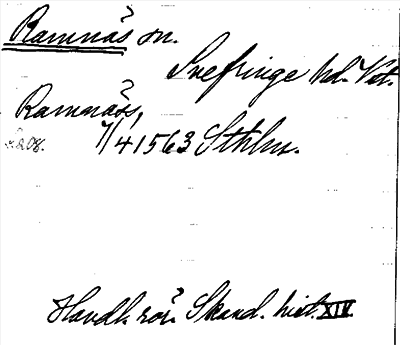 Ramnäs sn.
Snefringe hd. Vst.
Ramnäss,
7/4 1563 Sthlm.
s. 208.
Handl. rör. Skand. hist. XIV.